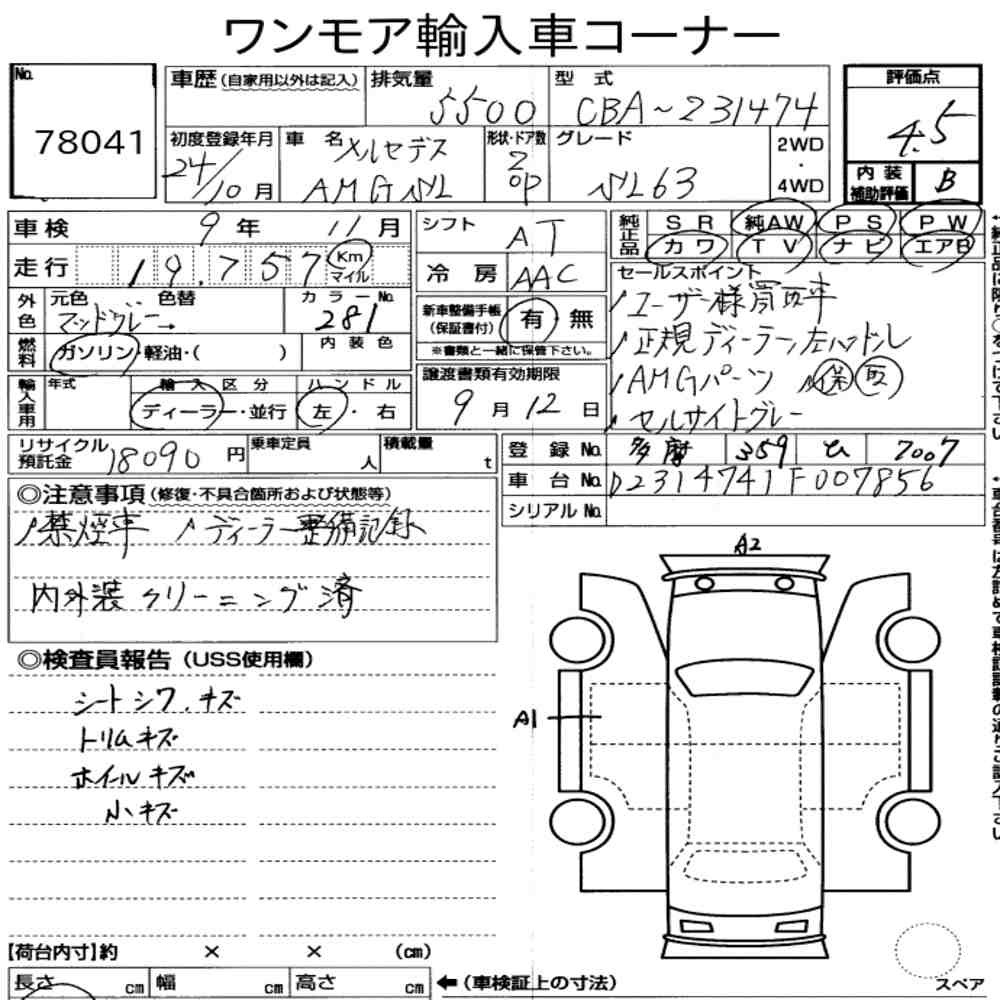 ワンモア輸入車コーナー
No.
78041
車歴(自家用以外は記入)
排気量
5500
型式
CBA~231474
評価点
4.5
初度登録年月
24/10月
車名
メルセデス
AMG SL
形状・ドア数
2
OP
グレード
SL63
2WD
・
4WD
内装
補助評価
B
車検 9年 11月
走行 19,757 Km
マイル
シフト AT
冷房 AAC
純正品
SR 純AW PS PW
カワ TV ナビ エアB
外色
元色 色替
マッドグレー→
カラーNo.
281
燃料
ガソリン・軽油・( )
内装色
新車整備手帳
(保証書付)
有・無
※書類と一緒に保管下さい。
セールスポイント
ユーザー様買取車
正規ディーラー左ハンドル
AMGパーツ 保 取
セルサイトグレー
輸入車用
年式
輸入区分
ディーラー・並行
ハンドル
左・右
譲渡書類有効期限
9月12日
リサイクル
預託金
18090円
乗車定員
人
積載量
t
登録No. 多摩 359 ひ 7007
車台No. D2314741F007856
シリアルNo.
◎注意事項(修復・不具合箇所および状態等)
禁煙車 ディーラー整備記録
内外装クリーニング済
◎検査員報告(USS使用欄)
シートシワ、キズ
トリムキズ
ホイルキズ
小キズ
A2
A1
【荷台内寸】約 × × (cm)
長さ cm 幅 cm 高さ cm
←(車検証上の寸法)
スペア